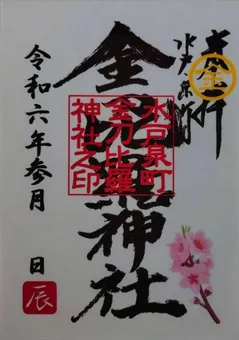 奉拝
金
水戸泉町
金刀比羅神社
水戸泉町
金刀比羅
神社之印
令和六年参月　日
辰